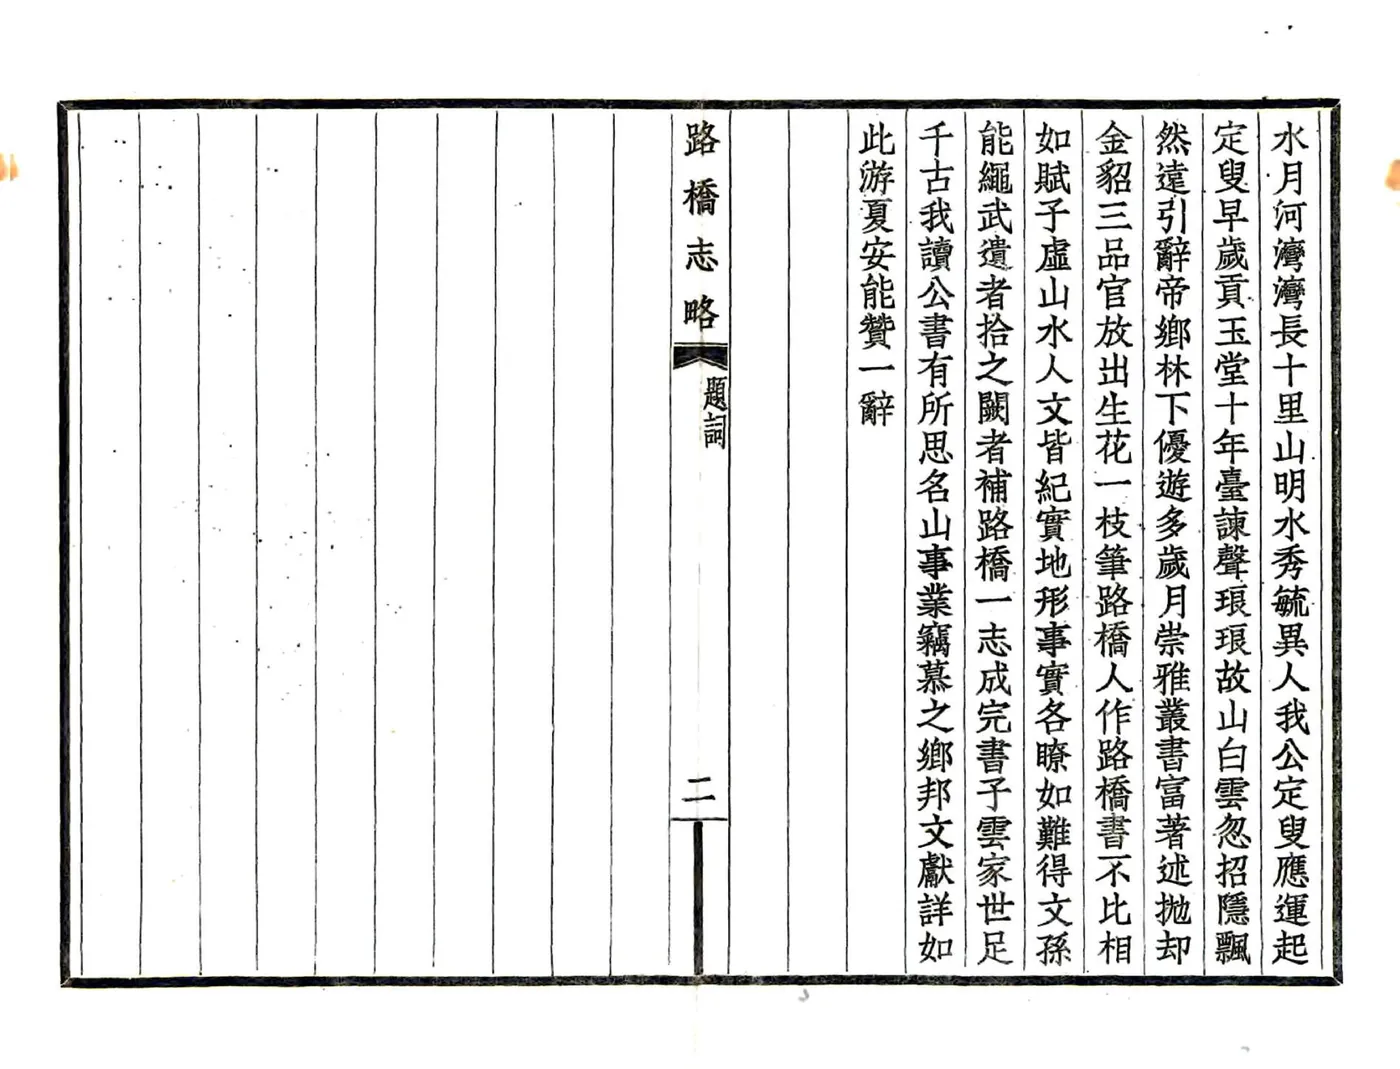 水月河灣灣長十里山明水秀毓異人我公定叟應運起
定叟早歲貢玉堂十年臺諫聲琅琅故山白雲忽招隱飄
然遠引辭帝鄉林下優遊多歲月崇雅叢書富著述拋却
金貂三品官放出生花一枝筆路橋人作路橋書不比相
如賦子虛山水人文皆紀實地形事實各瞭如難得文孫
能繩武遺者拾之闕者補路橋一志成完書子雲家世足
千古我讀公書有所思名山事業竊慕之鄉邦文獻詳如
此游夏安能贊一辭
路橋志略
題詞
二